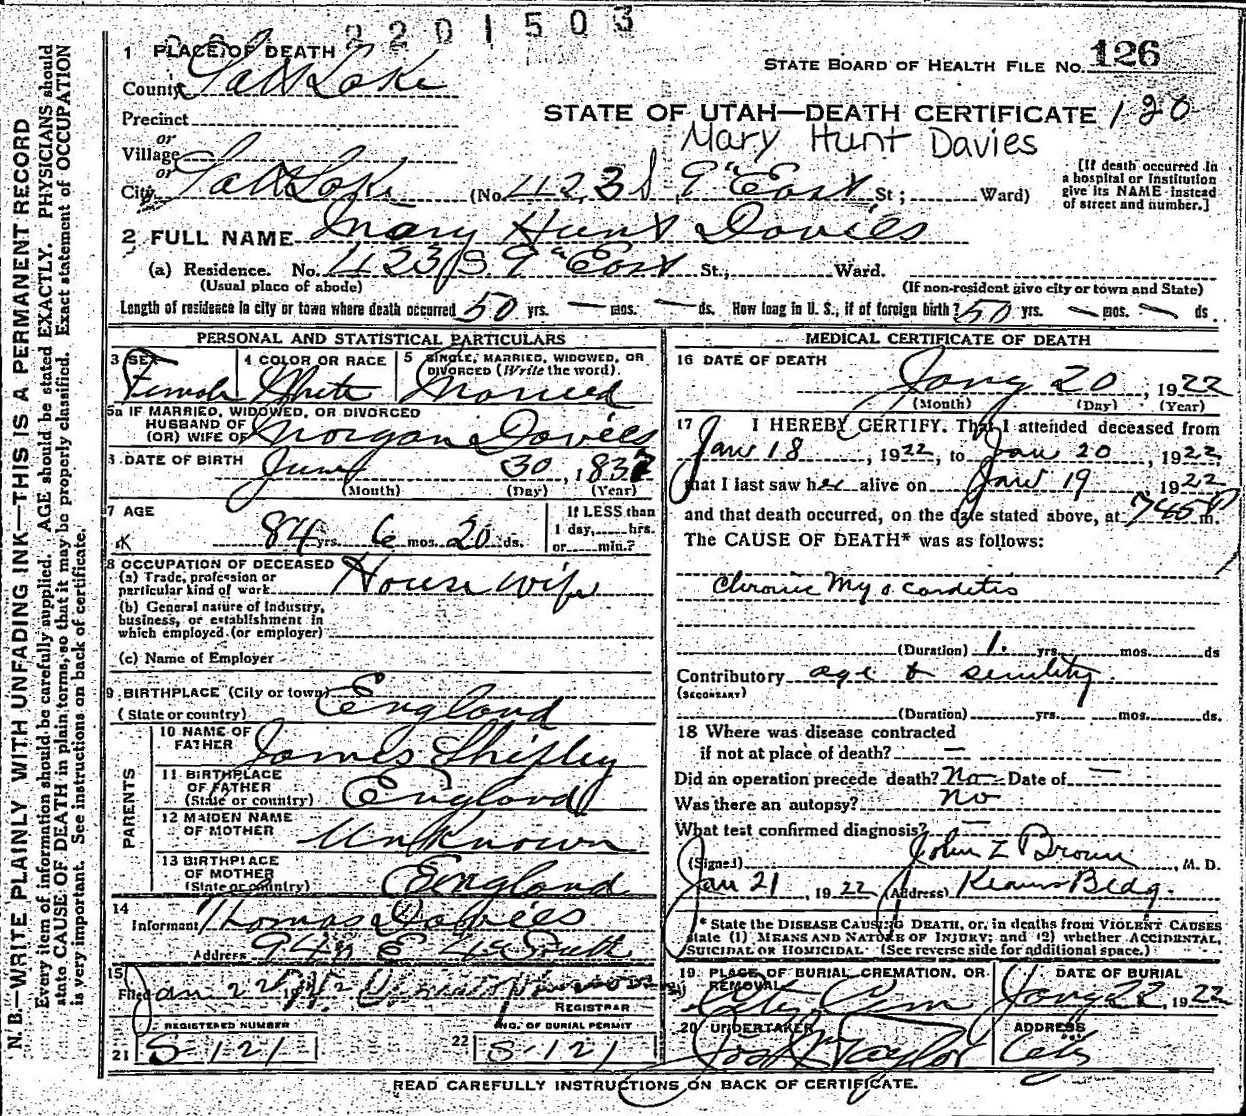 2201503
1 PLACE OF DEATH
County Salt Lake
STATE BOARD OF HEALTH FILE NO. 126
STATE OF UTAH—DEATH CERTIFICATE 120
Precinct
Mary Hunt Davies
or
Village
or
City Salt Lake (No. 423 S 9th East St; Ward)
[If death occurred in
a hospital or institution
give its NAME instead
of street and number.]
2 FULL NAME Mary Hunt Davies
(a) Residence. No. 423 S 9th East St., Ward.
(Usual place of abode) (If non-resident give city or town and State)
Length of residence in city or town where death occurred 50 yrs. — mos. — ds. How long in U. S., if of foreign birth? 50 yrs. — mos. — ds.
PERSONAL AND STATISTICAL PARTICULARS
3 SEX 4 COLOR OR RACE 5 SINGLE, MARRIED, WIDOWED, OR
DIVORCED (Write the word).
Female White Married
5a IF MARRIED, WIDOWED, OR DIVORCED
HUSBAND OF
(OR) WIFE OF Morgan Davies
6 DATE OF BIRTH June 30, 1837
(Month) (Day) (Year)
7 AGE
84 yrs. 6 mos. 20 ds.
If LESS than
1 day, hrs.
or min.?
8 OCCUPATION OF DECEASED
(a) Trade, profession or
particular kind of work House wife
(b) General nature of industry,
business, or establishment in
which employed (or employer)
(c) Name of Employer
9 BIRTHPLACE (City or town)
(State or country) England
PARENTS
10 NAME OF
FATHER James Shipley
11 BIRTHPLACE
OF FATHER
(State or country) England
12 MAIDEN NAME
OF MOTHER Unknown
13 BIRTHPLACE
OF MOTHER
(State or country) England
14
Informant Thomas Davies
Address E 4th South
15
Filed Jan 22
REGISTRAR
REGISTERED NUMBER NO. OF BURIAL PERMIT
21 S-121 22 S-121
MEDICAL CERTIFICATE OF DEATH
16 DATE OF DEATH
Jany 20, 1922
(Month) (Day) (Year)
17 I HEREBY CERTIFY. That I attended deceased from
Jan 18, 1922, to Jan 20, 1922,
that I last saw her alive on Jan 19 1922
and that death occurred, on the date stated above, at 745P m.
The CAUSE OF DEATH* was as follows:
Chronic Myocarditis
(Duration) 1. yrs. mos. ds
Contributory age & senility
(SECONDARY)
(Duration) yrs. mos. ds.
18 Where was disease contracted
if not at place of death? —
Did an operation precede death? No Date of —
Was there an autopsy? no
What test confirmed diagnosis? —
(Signed) John Z Brown, M. D.
Jan 21, 1922 (Address) Kearns Bldg.
* State the DISEASE CAUSING DEATH, or, in deaths from VIOLENT CAUSES
state (1) MEANS AND NATURE OF INJURY; and (2) whether ACCIDENTAL,
SUICIDAL OR HOMICIDAL. (See reverse side for additional space.)
19 PLACE OF BURIAL, CREMATION, OR
REMOVAL DATE OF BURIAL
City Cem Jany 22, 1922
20 UNDERTAKER ADDRESS
Taylor City
READ CAREFULLY INSTRUCTIONS ON BACK OF CERTIFICATE.
N. B.—WRITE PLAINLY WITH UNFADING INK—THIS IS A PERMANENT RECORD
Every item of information should be carefully supplied. AGE should be stated EXACTLY. PHYSICIANS should
state CAUSE OF DEATH in plain terms, so that it may be properly classified. Exact statement of OCCUPATION
is very important. See instructions on back of certificate.